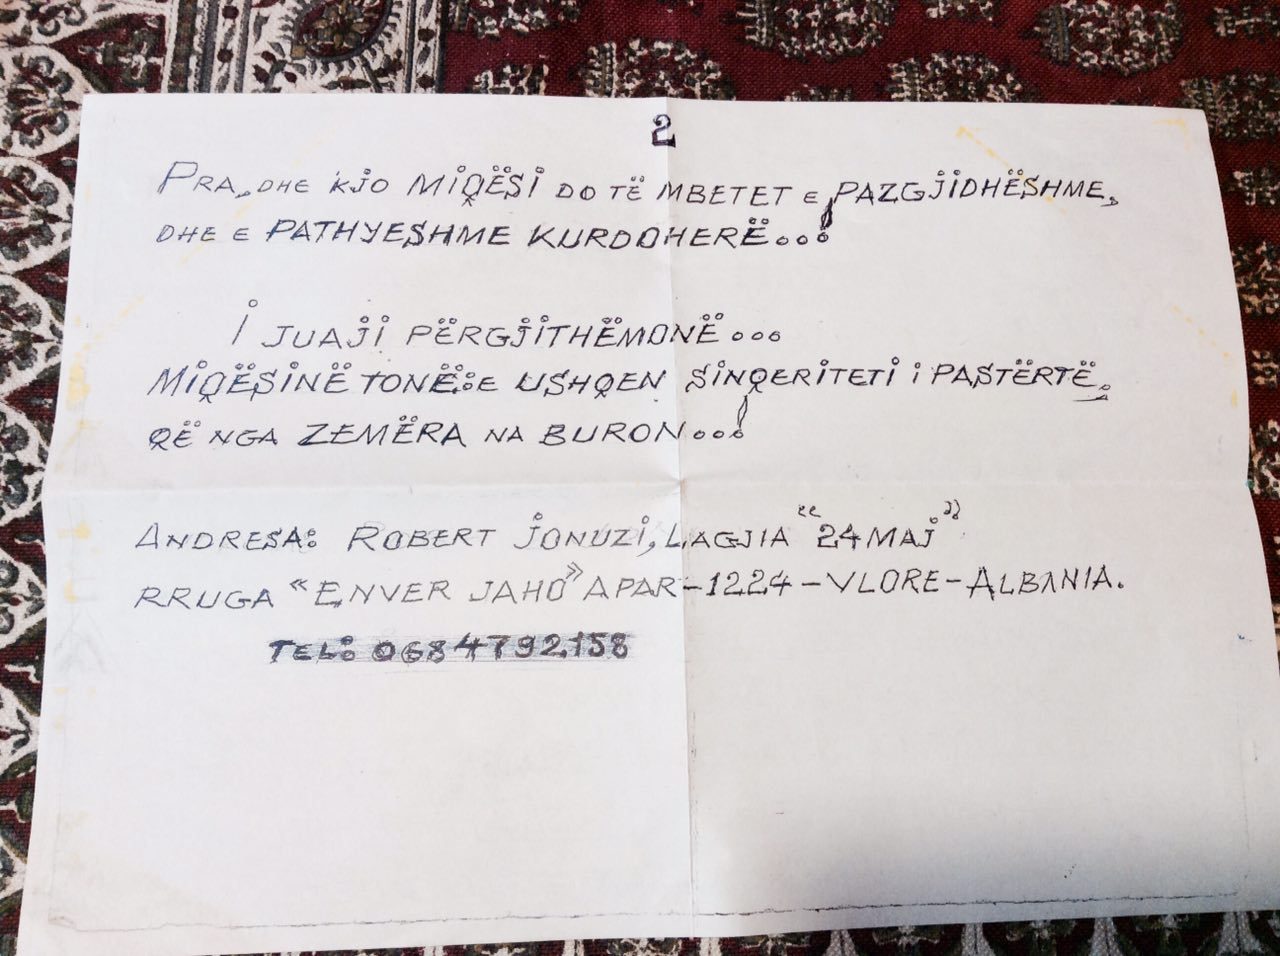 2
PRA, DHE KJO MIQËSI DO TË MBETET E PAZGJIDHËSHME,
DHE E PATHYESHME KURDOHERË...!
I JUAJI PËRGJITHËMONË...
MIQËSINË TONË:E USHQEN SINQERITETI I PASTËRTË,
QË NGA ZEMËRA NA BURON...!
ANDRESA: ROBERT JONUZI, LAGJIA "24 MAJ"
RRUGA «ENVER JAHO» APAR-1224-VLORE-ALBANIA.
TEL: 0684792158